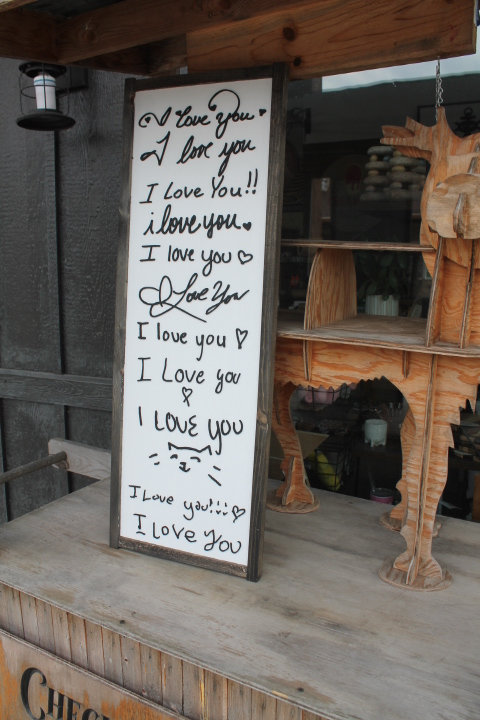 I love you
I love you
I Love You!!
i love you
I love you
I Love You
I love you
I Love you
I LOVE yOU
I Love you!!!
I Love You
CHEC